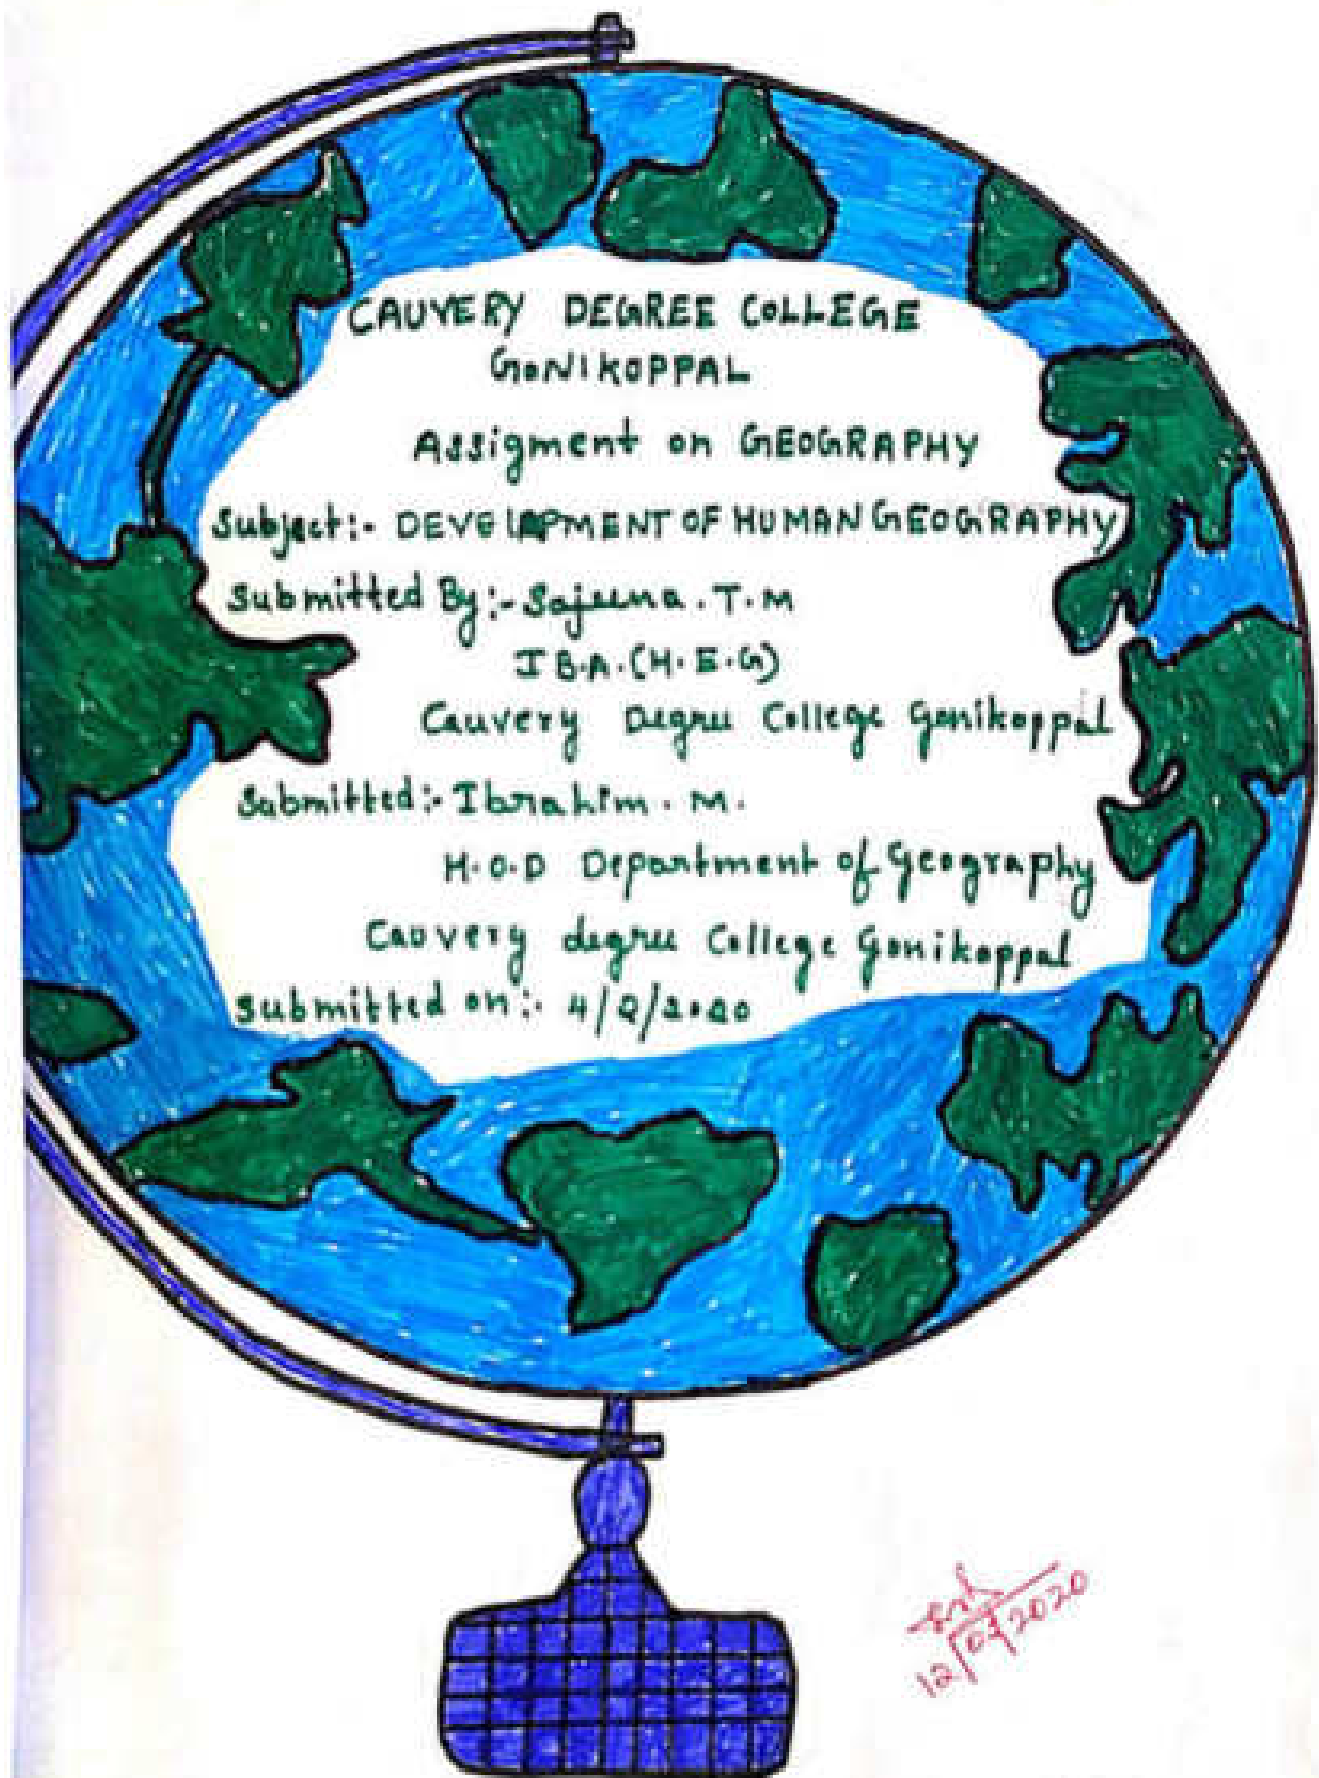 CAUVERY DEGREE COLLEGE
GONIKOPPAL
Assigment on GEOGRAPHY
Subject:- DEVELOPMENT OF HUMAN GEOGRAPHY
Submitted By:- Sajeena . T. M
I B.A. (H. E. G)
Cauvery Degree College Gonikoppal
Submitted:- Ibrahim . M.
H.O.D Department of Geography
Cauvery degree College Gonikoppal
Submitted on:- 4/2/2020